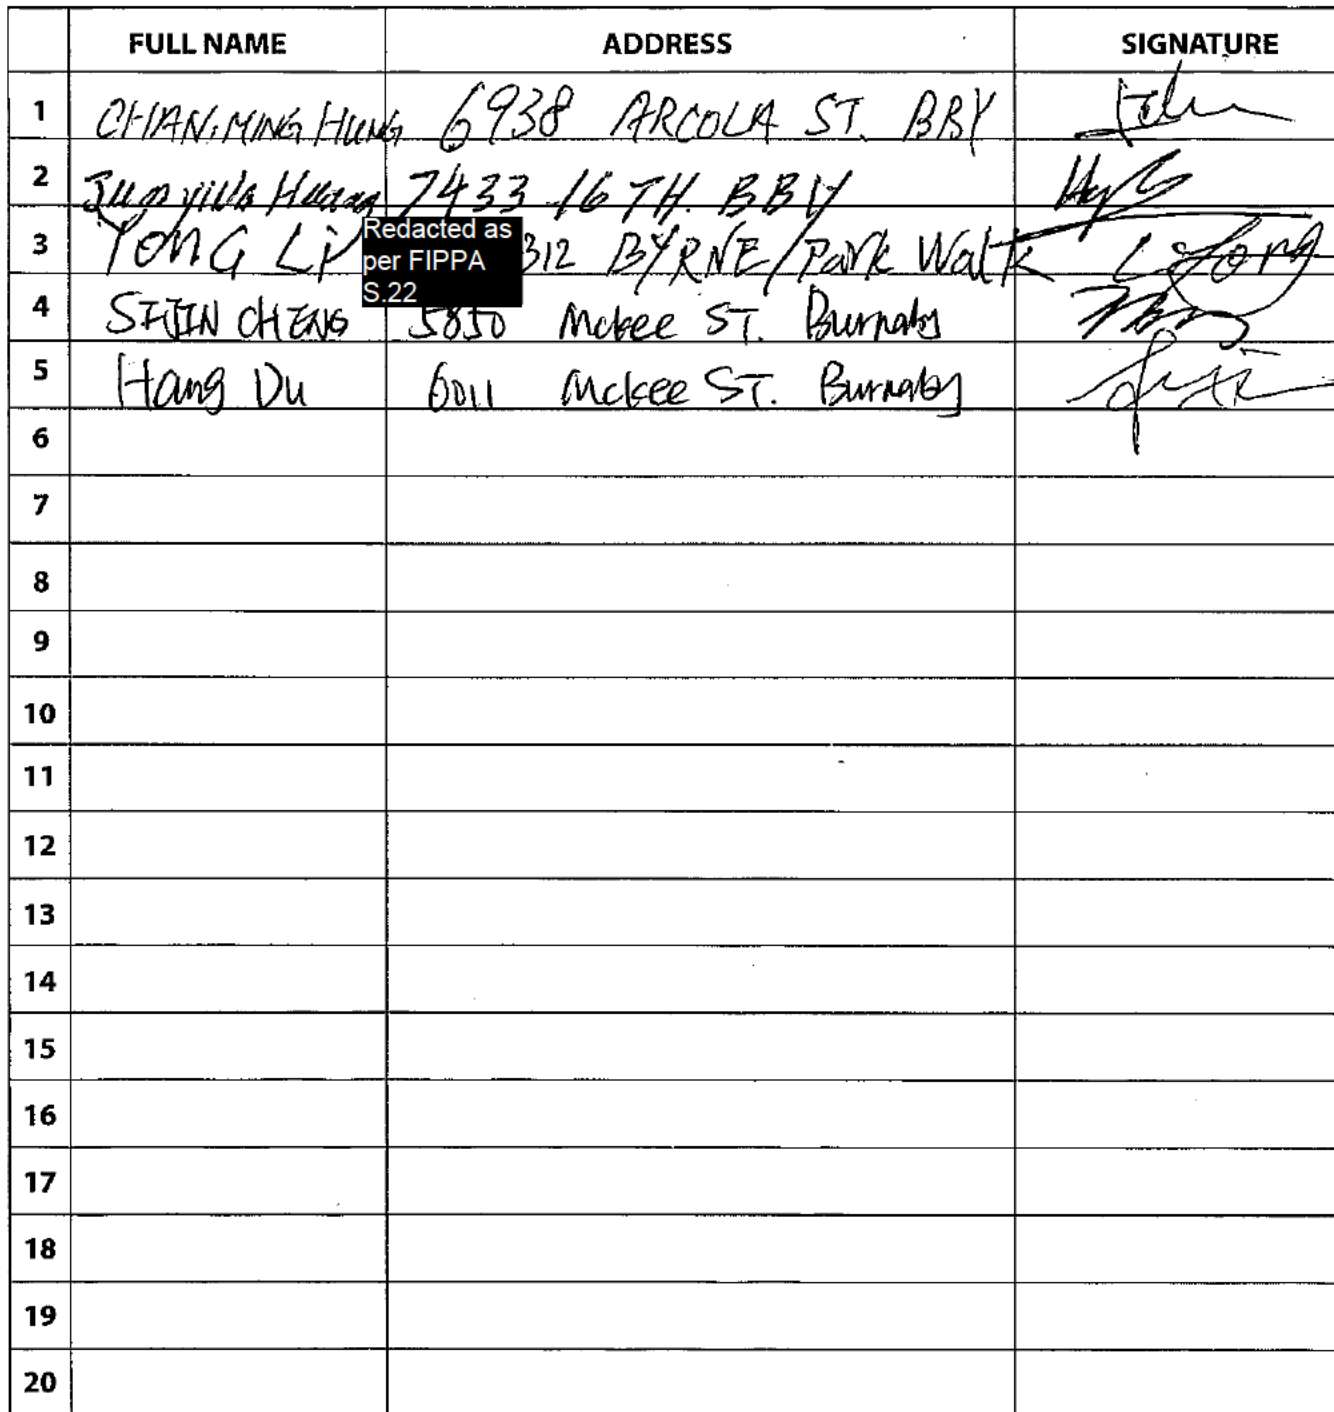 FULL NAME ADDRESS SIGNATURE
1 CHAN.MING HUNG 6938 ARCOLA ST. BBY
2 Huang 7433-16 TH. BBY
3 YONG Li Redacted as per FIPPA S.22 312 BYRNE/Park Walk Li Yong
4 SIJIN CHENG 5850 Mckee ST. Burnaby
5 Hang Du 6011 Mckee ST. Burnaby
6
7
8
9
10
11
12
13
14
15
16
17
18
19
20